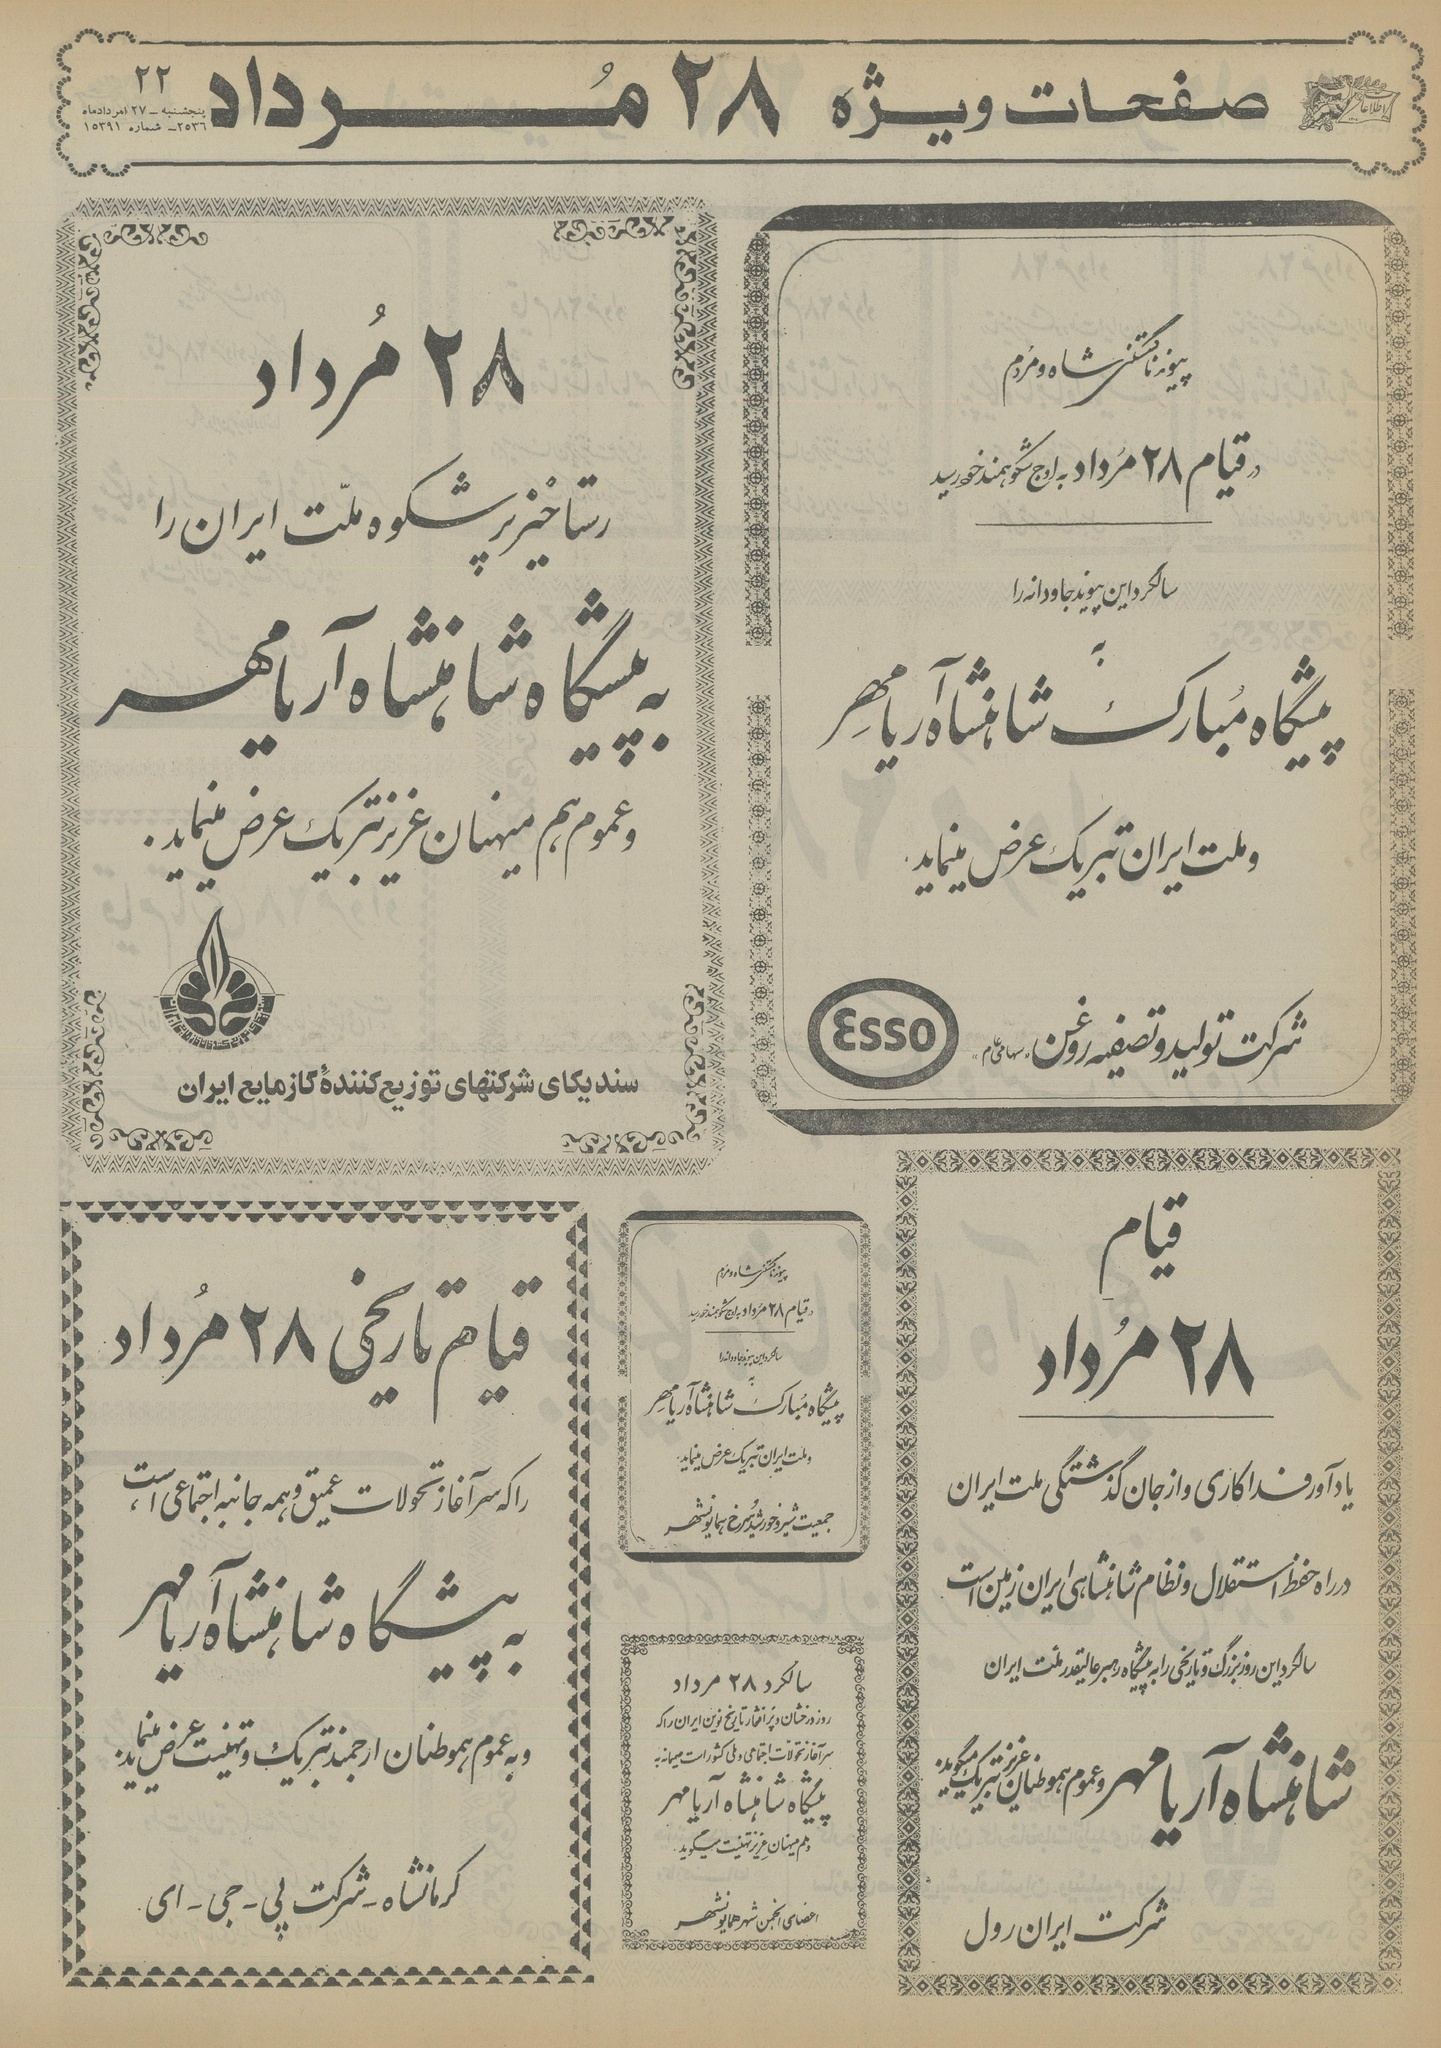 صفحات ویژه ۲۸ مُرداد
۲۲
پنجشنبه – ۲۷ امردادماه
۲۵۳۶ – شماره ۱۵۳۹۱
پیوند ناگسستنی شاه و مردم
در قیام ۲۸ مُرداد به اوج شکوهمند خود رسید
سالگرد این پیوند جاودانه را
به
پیشگاه مُبارک شاهنشاه آریامهر
و ملت ایران تبریک عرض مینماید.
شرکت تولید و تصفیه روغن «سهامی عام»
Esso
۲۸ مُرداد
رستاخیز پرشکوه ملّت ایران را
به پیشگاه شاهنشاه آریامهر
و عموم هم میهنان عزیز تبریک عرض مینماید.
سندیکای شرکتهای توزیع کنندهٔ گاز مایع ایران
قیامِ
۲۸ مُرداد
یادآور فداکاری و از جان گذشتگی ملت ایران
در راه حفظ استقلال و نظام شاهنشاهی ایران زمین است
سالگرد این روز بزرگ و تاریخی را به پیشگاه رهبر عالیقدر ملّت ایران
شاهنشاه آریامهر و عموم هموطنان عزیز تبریک میگوید.
شرکت ایران رول
پیوند ناگسستنی شاه و مردم
در قیام ۲۸ مُرداد به اوج شکوهمند خود رسید
سالگرد این پیوند جاودانه را
به
پیشگاه مُبارک شاهنشاه آریامهر
و ملت ایران تبریک عرض مینماید.
جمعیت شیر و خورشید سُرخ همایونشهر
سالگرد ۲۸ مرداد
روز درخشان و پُر افتخار تاریخ نوین ایران را که
سرآغاز تحولات اجتماعی و ملی کشور است صمیمانه به
پیشگاه شاهنشاه آریامهر
و هم میهنان عزیز تهنیت میگوید.
اعضای انجمن شهر همایونشهر
قیام تاریخی ۲۸ مُرداد
را که سرآغاز تحولات عمیق و همه جانبه اجتماعی است،
به پیشگاه شاهنشاه آریامهر
و به عموم هموطنان ارجمند تبریک و تهنیت عرض مینماید.
کرمانشاه – شرکت پی – جی – ای